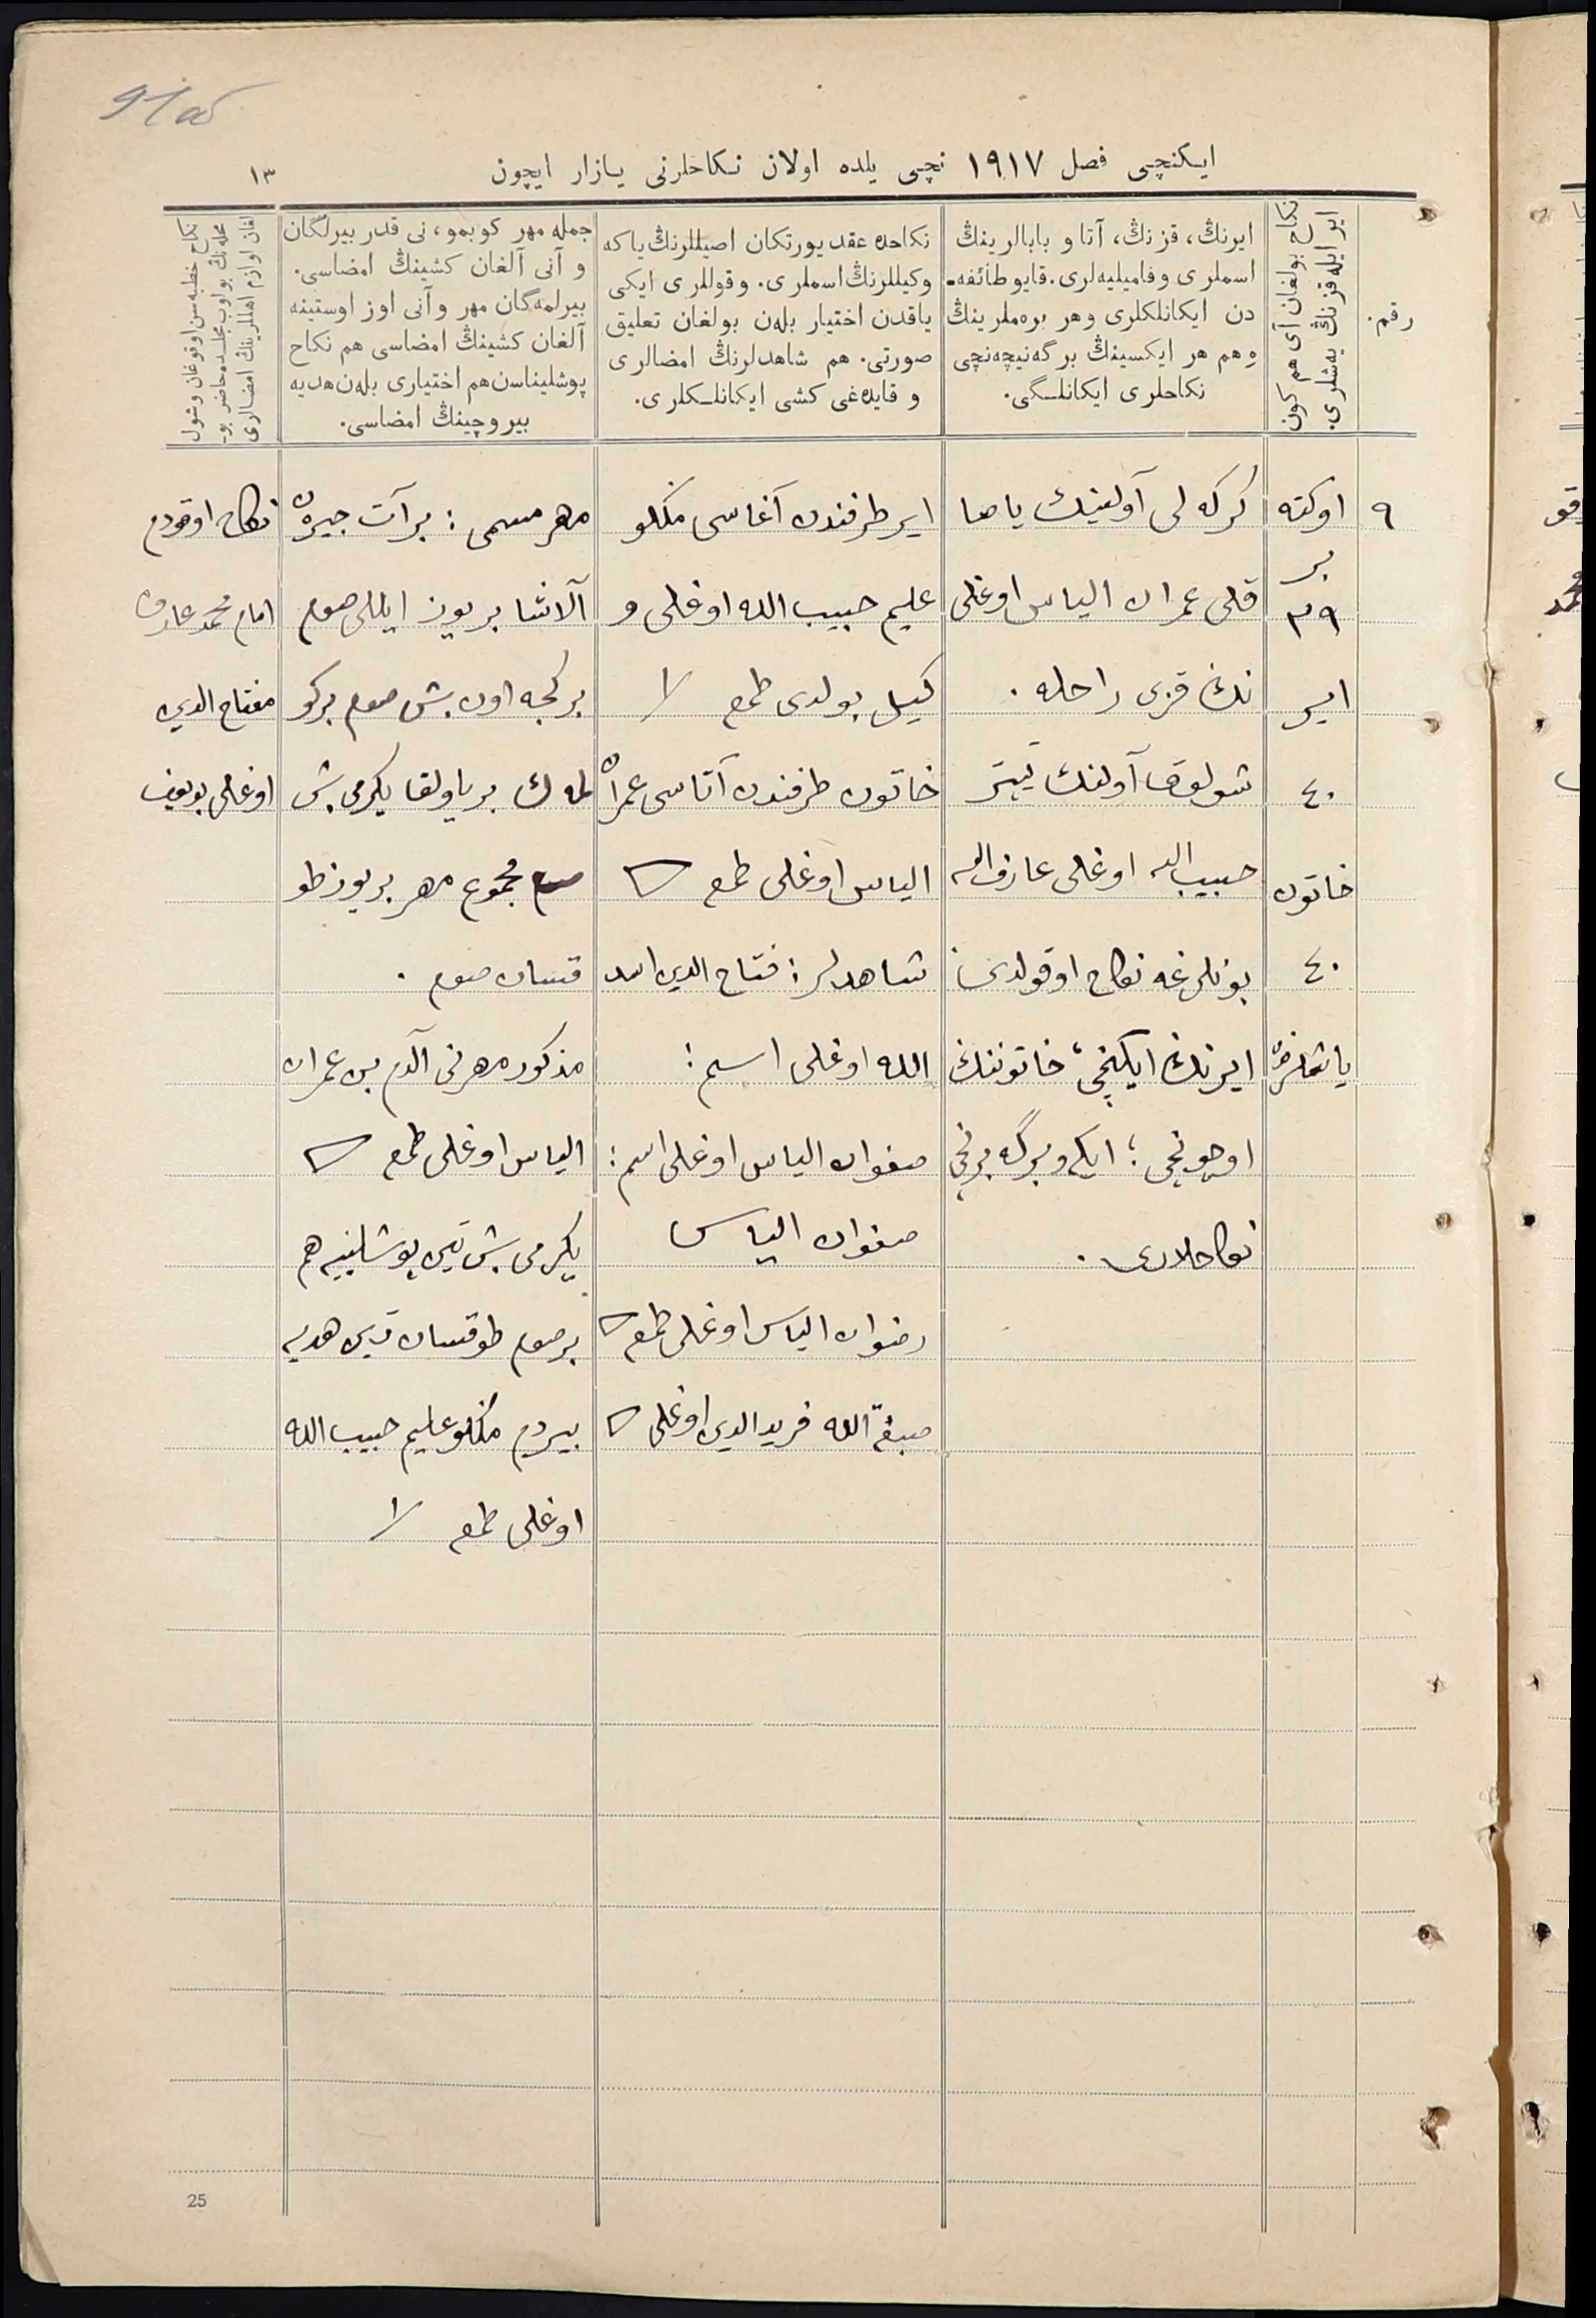 ایكنچی فصل ١٩١٧ نچی یلده اولان نكاحلرنی یازار ایچون
١٣
رقم.
نكاح بولغان آی هم كون
ایر ایله قزنڭ یه‌شلری.
ایرنڭ، قزنڭ، آتا و بابالرینڭ
اسملری وفامیلیه‌لری. قایو طائفه-
دن ایكانلكلری وهر بره‌ملرینڭ
هم هر ایكسینڭ برگه‌نیچه‌نچی
نكاحلری ایكانلـگی.
نكاحده عقد یورتكان اصیللرنڭ یاكه
وكیللرنڭ اسملری. وقوللری ایكی
یاقدن اختیار بله‌ن بولغان تعلیق
صورتی. هم شاهدلرنڭ امضالری
و قایده‌غی كشی ایكانلـكلری.
جمله مهر كوبمو، نی قدر بیرلگان
و آنی آلغان كشینڭ امضاسی.
بیرلمه‌گان مهر وآنی اوز اوستینه
آلغان كشینڭ امضاسی هم نكاح
پوشلیناسن هم اختیاری بله‌ن هدیه
بیروچینڭ امضاسی.
نكاح خطبه‌سن اوقوغان وشول
محله‌نڭ بواوب مجلسده حاضر بو-
لغان اوازم اهللرینڭ امضالری
٩
اوكته
بر
٣٩
ایر
٤٠
خاتون
٤٠
یاشلرنده
كركه لی آولینك یاصا
قلی عمران الیاس اوغلی
نك قزی راحله.
شولوق آولنك تیتر
حبیب الله اوغلی عارف الله
بونلرغه نكاح اوقولدی
ایرنك ایكنچی، خاتوننك
اوچونچی؛ ایكی برگه برنچی
نكاحلاری.
ایر طرفندن آغاسی منكلو
علیم حبیب الله اوغلی و
كیل بولدی طمع
خاتون طرفندن آتاسی عمران
الیاس اوغلی طمع
شاهدلر: فتاح الدین اسد
الله اوغلی اسم:
صفوان الیاس اوغلی اسم:
صفوان الیاس
رضوان الیاس اوغلی طمع
صبغة الله فرید الدین اوغلی
مهر مسمی: بر آت جیره‌ن
آلاشا بر یوز ایللی صوم
بر كجه اون بش صوم بركو
لمه‌ك بر یاولقا یكرمی بش
صوم مجموع مهر بر یوز طو
قسان صوم.
مذكور مهرنی آلدم من عمران
الیاس اوغلی طمع
یكرمی بش تین پوشلینه هم
بر صوم طوقسان تین هدیه
بیردم منكلو علیم حبیب الله
اوغلی طمع
نكاح اوقودم
امام محمد عارف
مفتاح الدین
اوغلی
25